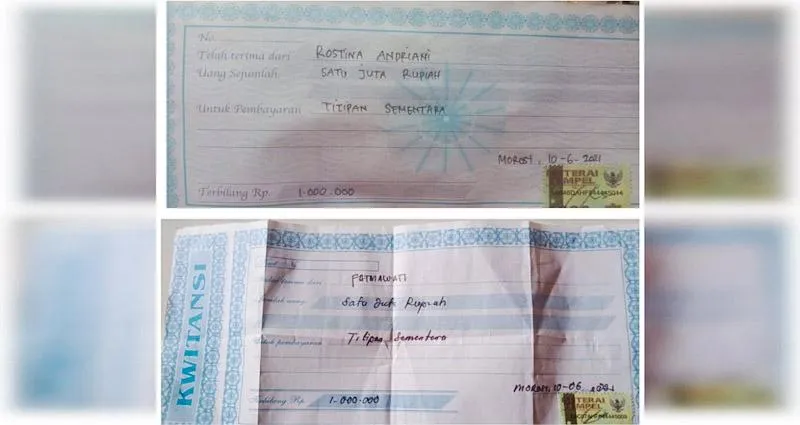 No.
Telah terima dari ROSTINA ANDRIANI
Uang Sejumlah SATU JUTA RUPIAH
Untuk Pembayaran TITIPAN SEMENTARA
MOROSI, 10-6-2021
TERAI
MPEL
Terbilang Rp. 1.000.000
KWITANSI
terima dari FATMAWATI
Satu Juta Rupiah
pembayaran Titipan Sementara
MOROSI, 10-06-2021
Terbilang Rp. 1.000.000
TERAI
MPEL